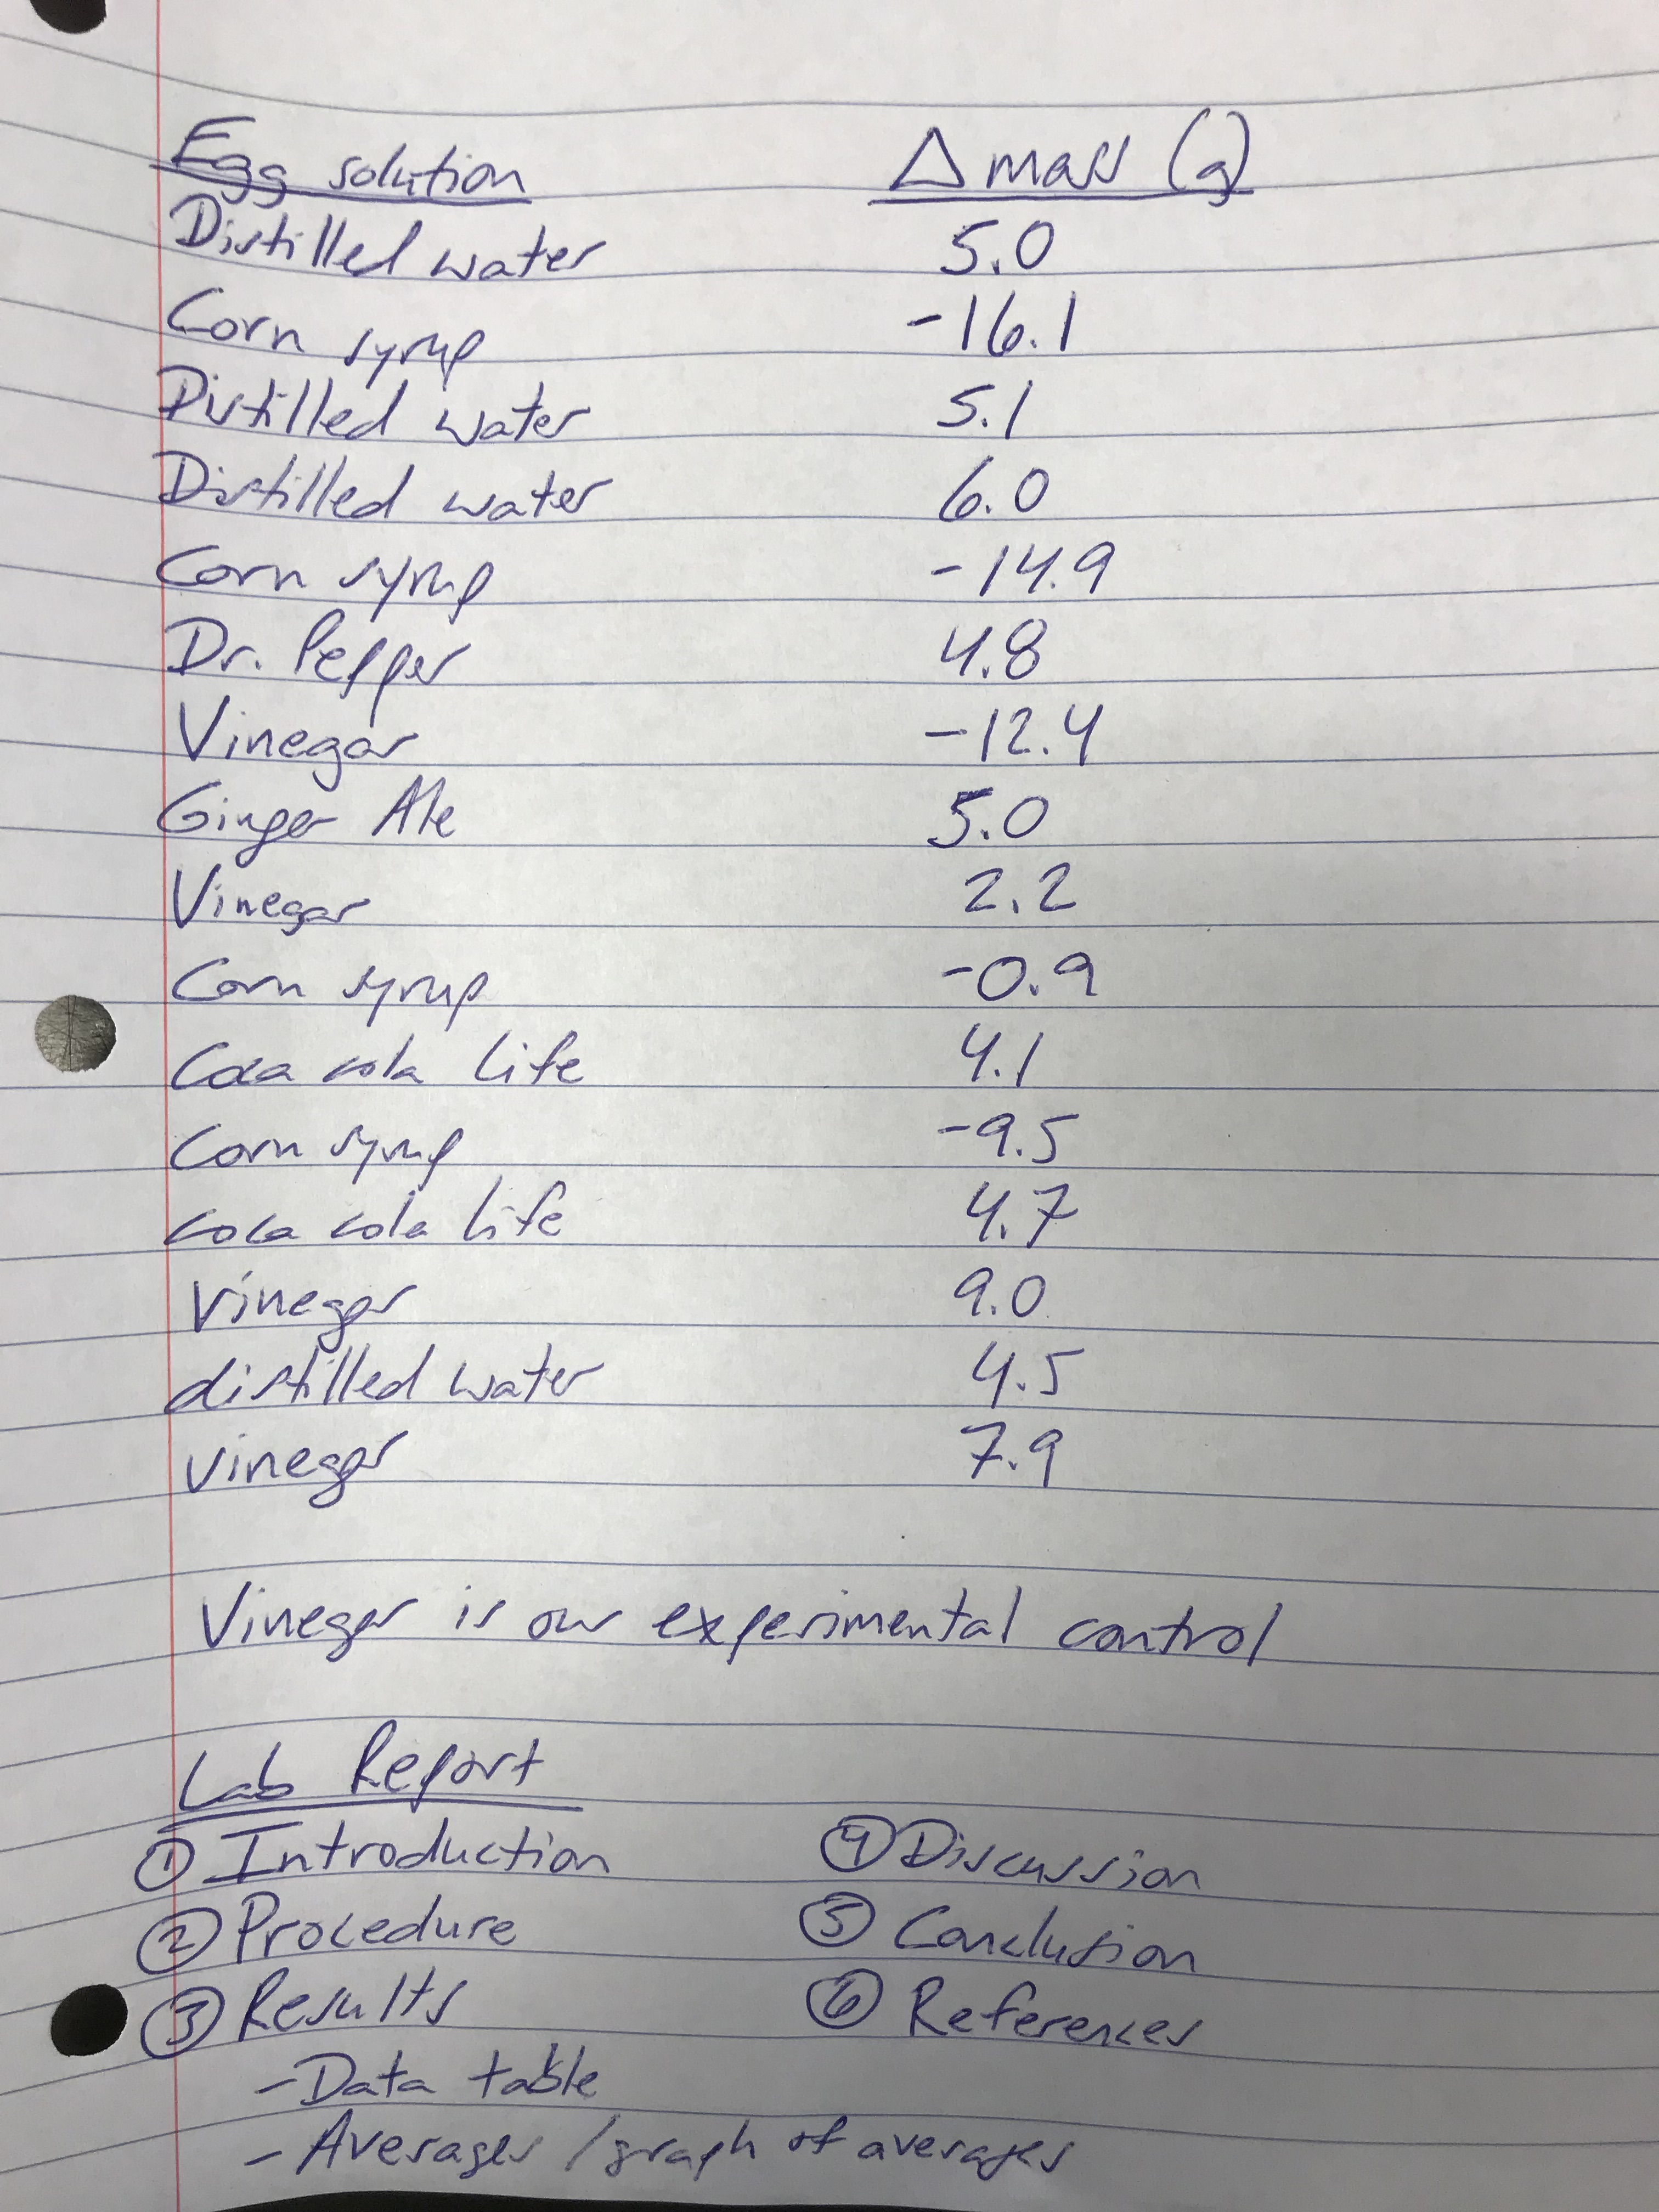 Egg solution Δ mass (g)
Distilled water 5.0
Corn syrup -16.1
Distilled water 5.1
Distilled water 6.0
Corn syrup -14.9
Dr. Pepper 4.8
Vinegar -12.4
Ginger Ale 5.0
Vinegar 2.2
Corn syrup -0.9
Coca cola Life 4.1
Corn syrup -9.5
coca cola life 4.7
vinegar 9.0
distilled water 4.5
vinegar 7.9
Vinegar is our experimental control
Lab Report
① Introduction ④ Discussion
② Procedure ⑤ Conclusion
③ Results ⑥ References
- Data table
- Averages / graph of averages